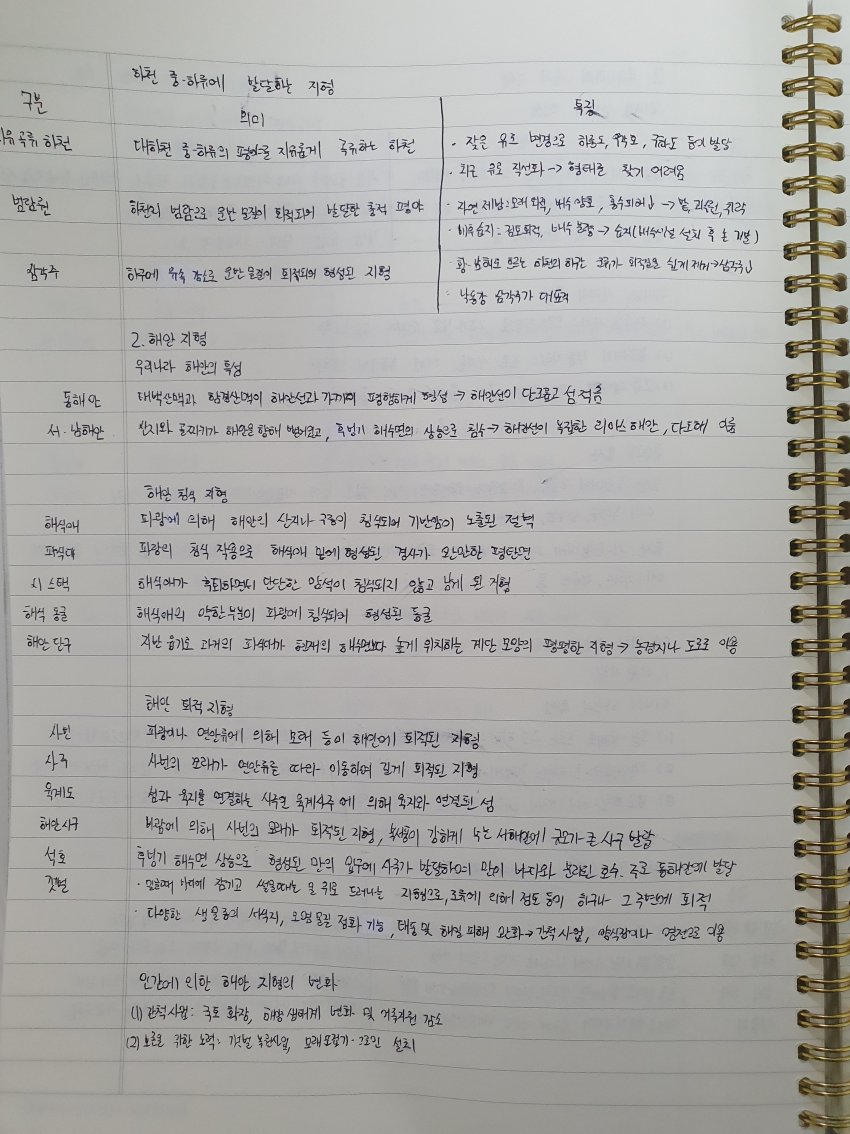 하천 중·하류에 발달하는 지형
구분 의미 특징
자유 곡류 하천 대하천 중·하류의 평야를 자유롭게 곡류하는 하천
· 잦은 유로 변경으로 하중도, 우각호, 구하도 등이 발달
· 최근 유로 직선화 → 형태를 찾기 어려움
범람원 하천의 범람으로 운반 물질이 퇴적되어 발달한 충적 평야
· 자연 제방: 모래 퇴적, 배수 양호, 홍수피해↓ → 밭, 과수원, 취락
· 배후습지: 점토퇴적, 배수 불량 → 습지(배수시설 설치 후 논 개발)
삼각주 하구에 유속 감소로 운반 물질이 퇴적되어 형성된 지형
· 황·남해로 흐르는 하천의 하구는 조류가 퇴적물을 쉽게 제거→삼각주↓
· 낙동강 삼각주가 대표적
2. 해안 지형
우리나라 해안의 특성
동해안 태백산맥과 함경산맥이 해안선과 가까이 평행하게 형성 → 해안선이 단조롭고 섬 적음
서·남해안 산지와 골짜기가 해안을 향해 뻗어있고, 후빙기 해수면의 상승으로 침수 → 해안선이 복잡한 리아스 해안, 다도해 이룸
해안 침식 지형
해식애 파랑에 의해 해안의 산지나 구릉이 침식되어 기반암이 노출된 절벽
파식대 파랑의 침식 작용으로 해식애 밑에 형성된 경사가 완만한 평탄면
시 스택 해식애가 후퇴하면서 단단한 암석이 침식되지 않고 남게 된 지형
해식 동굴 해식애의 약한 부분이 파랑에 침식되어 형성된 동굴
해안 단구 지반 융기로 과거의 파식대가 현재의 해수면보다 높게 위치하는 계단 모양의 평평한 지형 → 농경지나 도로로 이용
해안 퇴적 지형
사빈 파랑이나 연안류에 의해 모래 등이 해안에 퇴적된 지형
사주 사빈의 모래가 연안류를 따라 이동하여 길게 퇴적된 지형
육계도 섬과 육지를 연결하는 사주인 육계사주에 의해 육지와 연결된 섬
해안사구 바람에 의해 사빈의 모래가 퇴적된 지형, 북서풍이 강하게 부는 서해안에 규모가 큰 사구 발달
석호 후빙기 해수면 상승으로 형성된 만의 입구에 사주가 발달하여 만이 바다와 분리된 호수. 주로 동해안에 발달
갯벌 · 밀물때 바다에 잠기고 썰물때는 물 위로 드러나는 지형으로, 조류에 의해 점토 등이 하구나 그 주변에 퇴적
· 다양한 생물종의 서식지, 오염 물질 정화 기능, 태풍 및 해일 피해 완화 → 간척 사업, 양식장이나 염전으로 이용
인간에 의한 해안 지형의 변화
(1) 간척 사업: 국토 확장, 해양 생태계 변화 및 어족자원 감소
(2) 보존을 위한 노력: 갯벌 복원사업, 모래포집기·그로인 설치